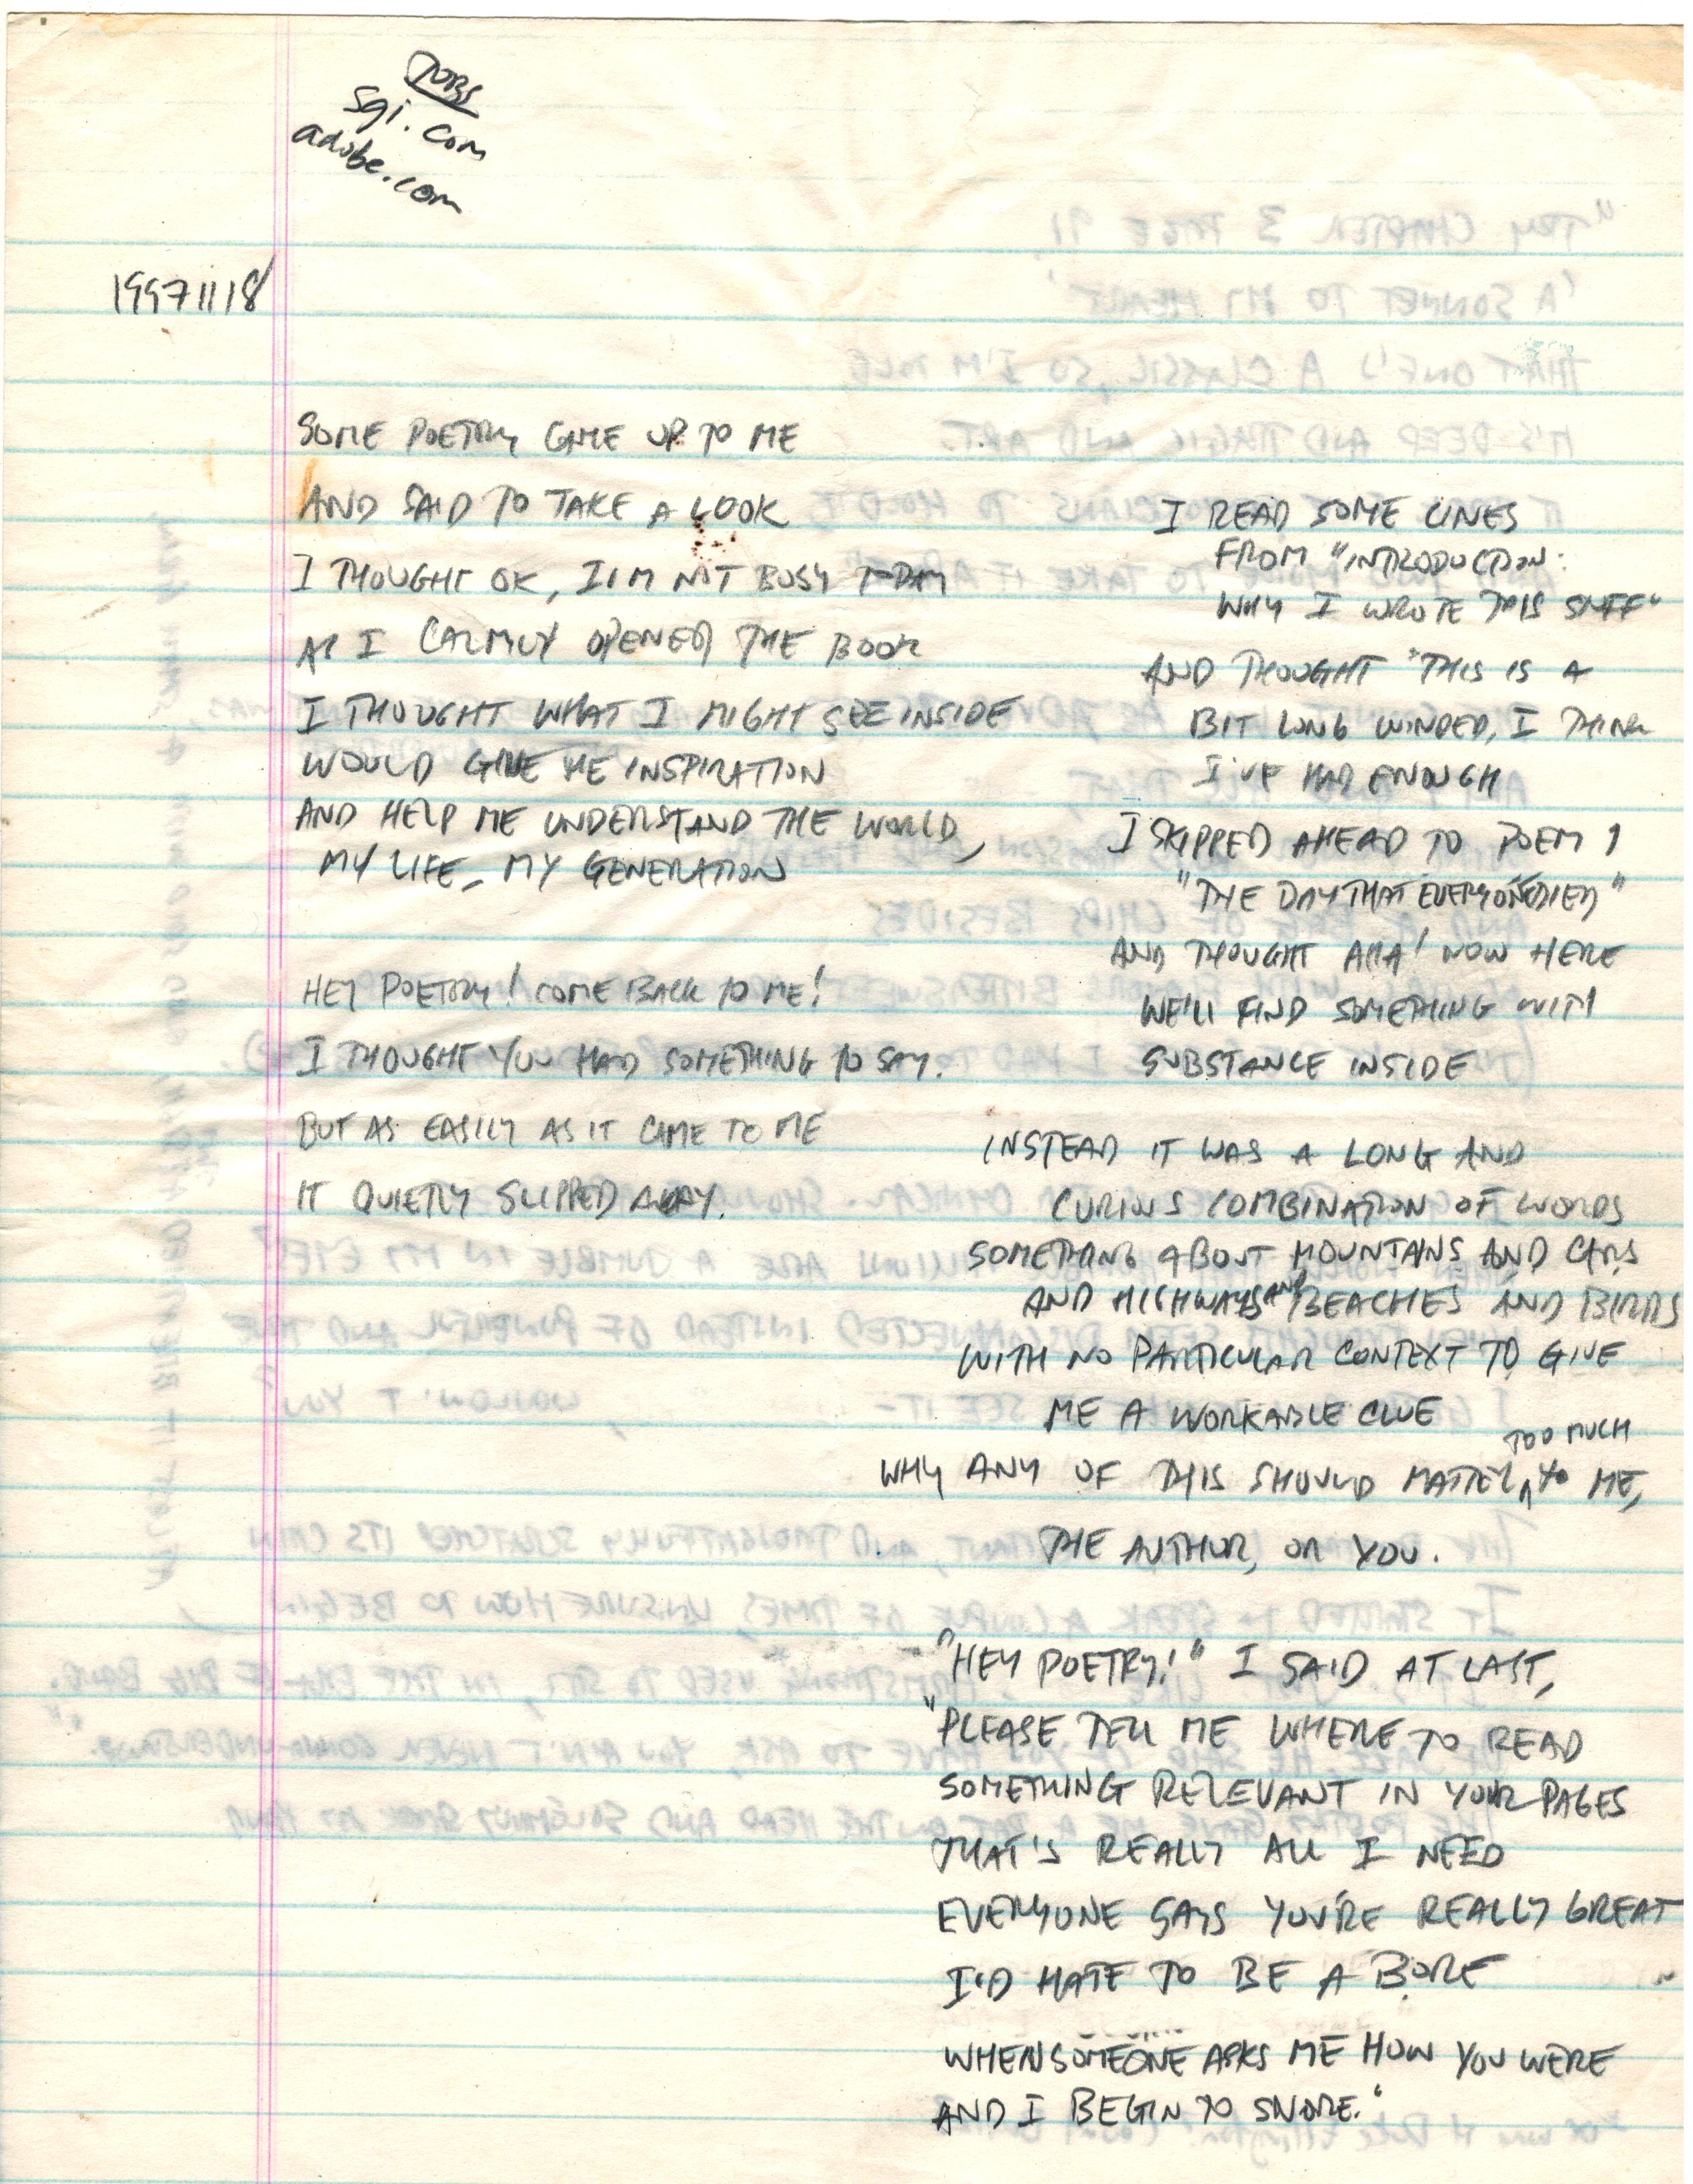 JOBS
sgi.com
adobe.com
19971118
SOME POETRY CAME UP TO ME
AND SAID TO TAKE A LOOK
I THOUGHT OK, I'M NOT BUSY TODAY
AS I CALMLY OPENED THE BOOK
I THOUGHT WHAT I MIGHT SEE INSIDE
WOULD GIVE ME INSPIRATION
AND HELP ME UNDERSTAND THE WORLD,
MY LIFE, MY GENERATION
HEY POETRY! COME BACK TO ME!
I THOUGHT YOU HAD SOMETHING TO SAY.
BUT AS EASILY AS IT CAME TO ME
IT QUIETLY SLIPPED AWAY.
I READ SOME LINES
FROM "INTRODUCTION:
WHY I WROTE THIS STUFF"
AND THOUGHT "THIS IS A
BIT LONG WINDED, I THINK
I'VE HAD ENOUGH
I SKIPPED AHEAD TO POEM 1
"THE DAY THAT EVERYONE DIED"
AND THOUGHT AHA! NOW HERE
WE'LL FIND SOMETHING WITH
SUBSTANCE INSIDE
INSTEAD IT WAS A LONG AND
CURIOUS COMBINATION OF WORDS
SOMETHING ABOUT MOUNTAINS AND CARS
AND HIGHWAYS AND BEACHES AND BIRDS
WITH NO PARTICULAR CONTEXT TO GIVE
ME A WORKABLE CLUE
WHY ANY OF THIS SHOULD MATTER TOO MUCH TO ME,
THE AUTHOR, OR YOU.
"HEY POETRY!" I SAID AT LAST,
"PLEASE TELL ME WHERE TO READ
SOMETHING RELEVANT IN YOUR PAGES
THAT'S REALLY ALL I NEED
EVERYONE SAYS YOU'RE REALLY GREAT
I'D HATE TO BE A BORE
WHEN SOMEONE ASKS ME HOW YOU WERE
AND I BEGIN TO SNORE."